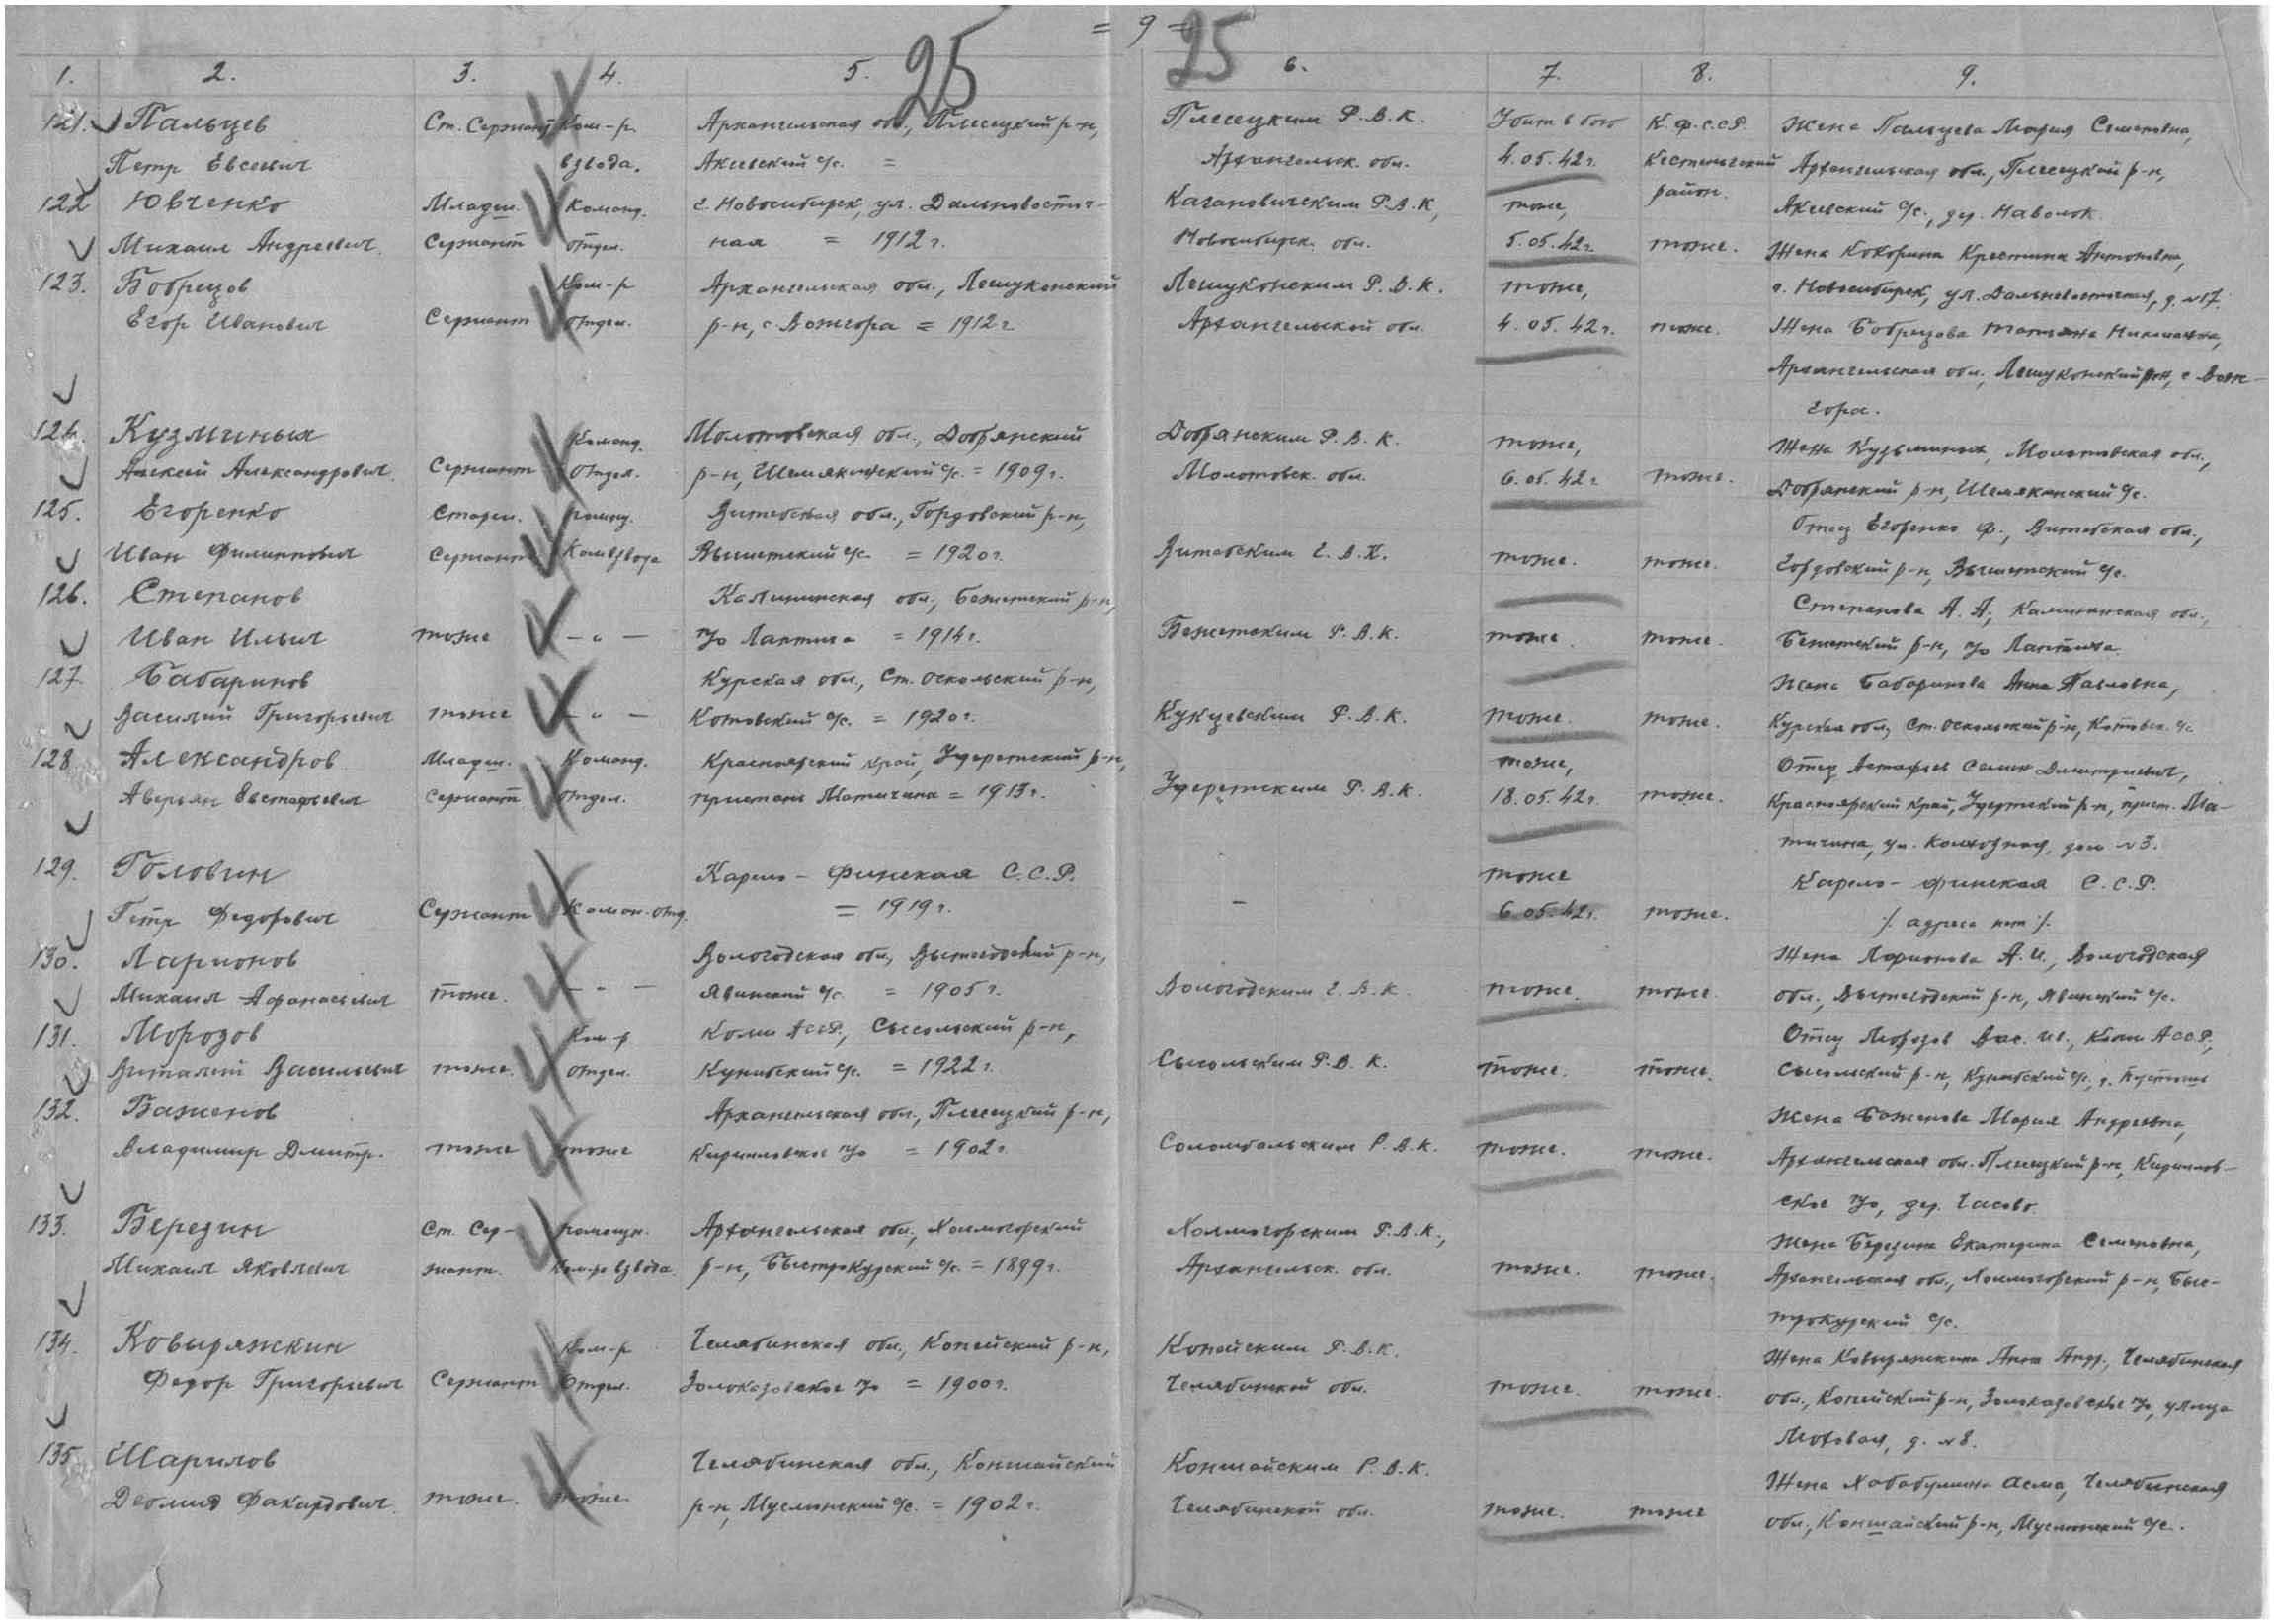 = 9 =
25 25
1. 2. 3. 4. 5. 6. 7. 8. 9.
121. Пальцев Ст. Сержант Ком-р. Архангельская обл., Плесецкий р-н, Плесецким Р.В.К. Убит в бою К.Ф.С.С.Р. Жена Пальцева Мария Семеновна,
Петр Евсеевич взвода. Акиевский с/с. = Архангельск. обл. 4.05.42 г. Кестеньгский Архангельская обл., Плесецкий р-н,
район. Акиевский с/с., дер. Наволок.
122 Ювченко Младш. Команд. г. Новосибирск, ул. Дальновосточ- Кагановическим Р.В.К., тоже,
Михаил Андреевич. Сержант отдел. ная = 1912 г. Новосибирск. обл. 5.05.42 г. тоже. Жена Кокорина Крестина Антоновна,
г. Новосибирск, ул. Дальневосточная, д. №17.
123. Бобрецов Ком-р Архангельская обл., Лешуконский Лешуконским Р.В.К. тоже,
Егор Иванович Сержант отдел. р-н, с. Вожгора = 1912 г. Архангельской обл. 4.05.42 г. тоже. Жена Бобрецова Татьяна Николаевна,
Архангельская обл., Лешуконский р-н, с. Вож-
гора.
124. Кузминых Команд. Молотовская обл., Добрянский Добрянским Р.В.К. тоже, Жена Кузьминых, Молотовская обл.,
Алексей Александрович. Сержант отдел. р-н, Шемякинский с/с. = 1909 г. Молотовск. обл. 6.05.42 г. тоже. Добрянский р-н, Шемякинский с/с.
125. Егоренко Старш. помощ. Витебская обл., Гордовский р-н, Отец Егоренко Ф., Витебская обл.,
Иван Филиппович Сержант Комвзвода Вышетский с/с. = 1920 г. Витебским Г.В.К. тоже. тоже. Гордовский р-н, Вышетский с/с.
126. Степанов Калининская обл., Бежетский р-н, Степанова А.А., Калининская обл.,
Иван Ильич тоже — " — п/о Лаптиха = 1914 г. Бежетским Р.В.К. тоже. тоже. Бежетский р-н, п/о Лаптиха.
127. Бабаринов Курская обл., Ст. Оскольский р-н, Жена Бабаринова Анна Павловна,
Василий Григорьевич тоже — " — Котовский с/с. = 1920 г. Кукуевским Р.В.К. тоже. тоже. Курская обл., Ст. Оскольский р-н, Котовск. с/с
128. Александров Младш. Команд. Красноярский край, Ужеретский р-н, тоже, Отец Астафьев Семен Дмитриевич,
Аверьян Евстафьевич Сержант отдел. пристань Матигина = 1913 г. Ужеретским Р.В.К. 18.05.42 г. тоже. Красноярский край, Ужеретский р-н, прист. Ма-
тигина, ул. Колхозная, дом №3.
129. Головин Карело-Финская С.С.Р. тоже Карело-Финская С.С.Р.
Петр Федорович Сержант Коман. отд. = 1919 г. — 6.05.42 г. тоже. /. адреса нет ./.
130. Ларионов Вологодская обл., Вытегодский р-н, Жена Ларионова А.И., Вологодская
Михаил Афанасьевич тоже. — " — Явинский с/с. = 1905 г. Вологодским Г.В.К. тоже. тоже. обл., Вытегодский р-н, Явинский с/с.
131. Морозов Ком-р Коми АССР, Сысольский р-н, Отец Морозов Вас. Ив., Коми АССР,
Виталий Васильевич тоже. отдел. Кунибский с/с. = 1922 г. Сысольским Р.В.К. тоже. тоже. Сысольский р-н, Кунибский с/с, д. Пустошь
132. Баженов Архангельская обл., Плесецкий р-н, Жена Баженова Мария Андреевна,
Владимир Дмитр. тоже тоже Кирилловское п/о = 1902 г. Соломбальским Р.В.К. тоже. тоже. Архангельская обл. Плесецкий р-н, Кириллов-
ское п/о, дер. Часово.
133. Березин Ст. Сер- помощн. Архангельская обл., Холмогорский Холмогорским Р.В.К., Жена Березина Екатерина Семеновна,
Михаил Яковлевич жант. Ком-ра взвода. р-н, Быстрокурский с/с. = 1899 г. Архангельск. обл. тоже. тоже. Архангельская обл., Холмогорский р-н, Быс-
трокурский с/с.
134. Ковыряжкин Ком-р Челябинская обл., Копейский р-н, Копейским Р.В.К. Жена Ковыряжкина Анна Андр., Челябинская
Федор Григорьевич Сержант отдел. Золоказовское п/о = 1900 г. Челябинской обл. тоже. тоже. обл., Копейский р-н, Золоказовское п/о, улица
Моховая, д. №8.
135 Шарипов Челябинская обл., Коншайский Коншайским Р.В.К. Жена Хабабулина Асма, Челябинская
тоже. тоже р-н, Муслинский с/с. = 1902 г. Челябинской обл. тоже. тоже обл., Коншайский р-н, Муслинский с/с.